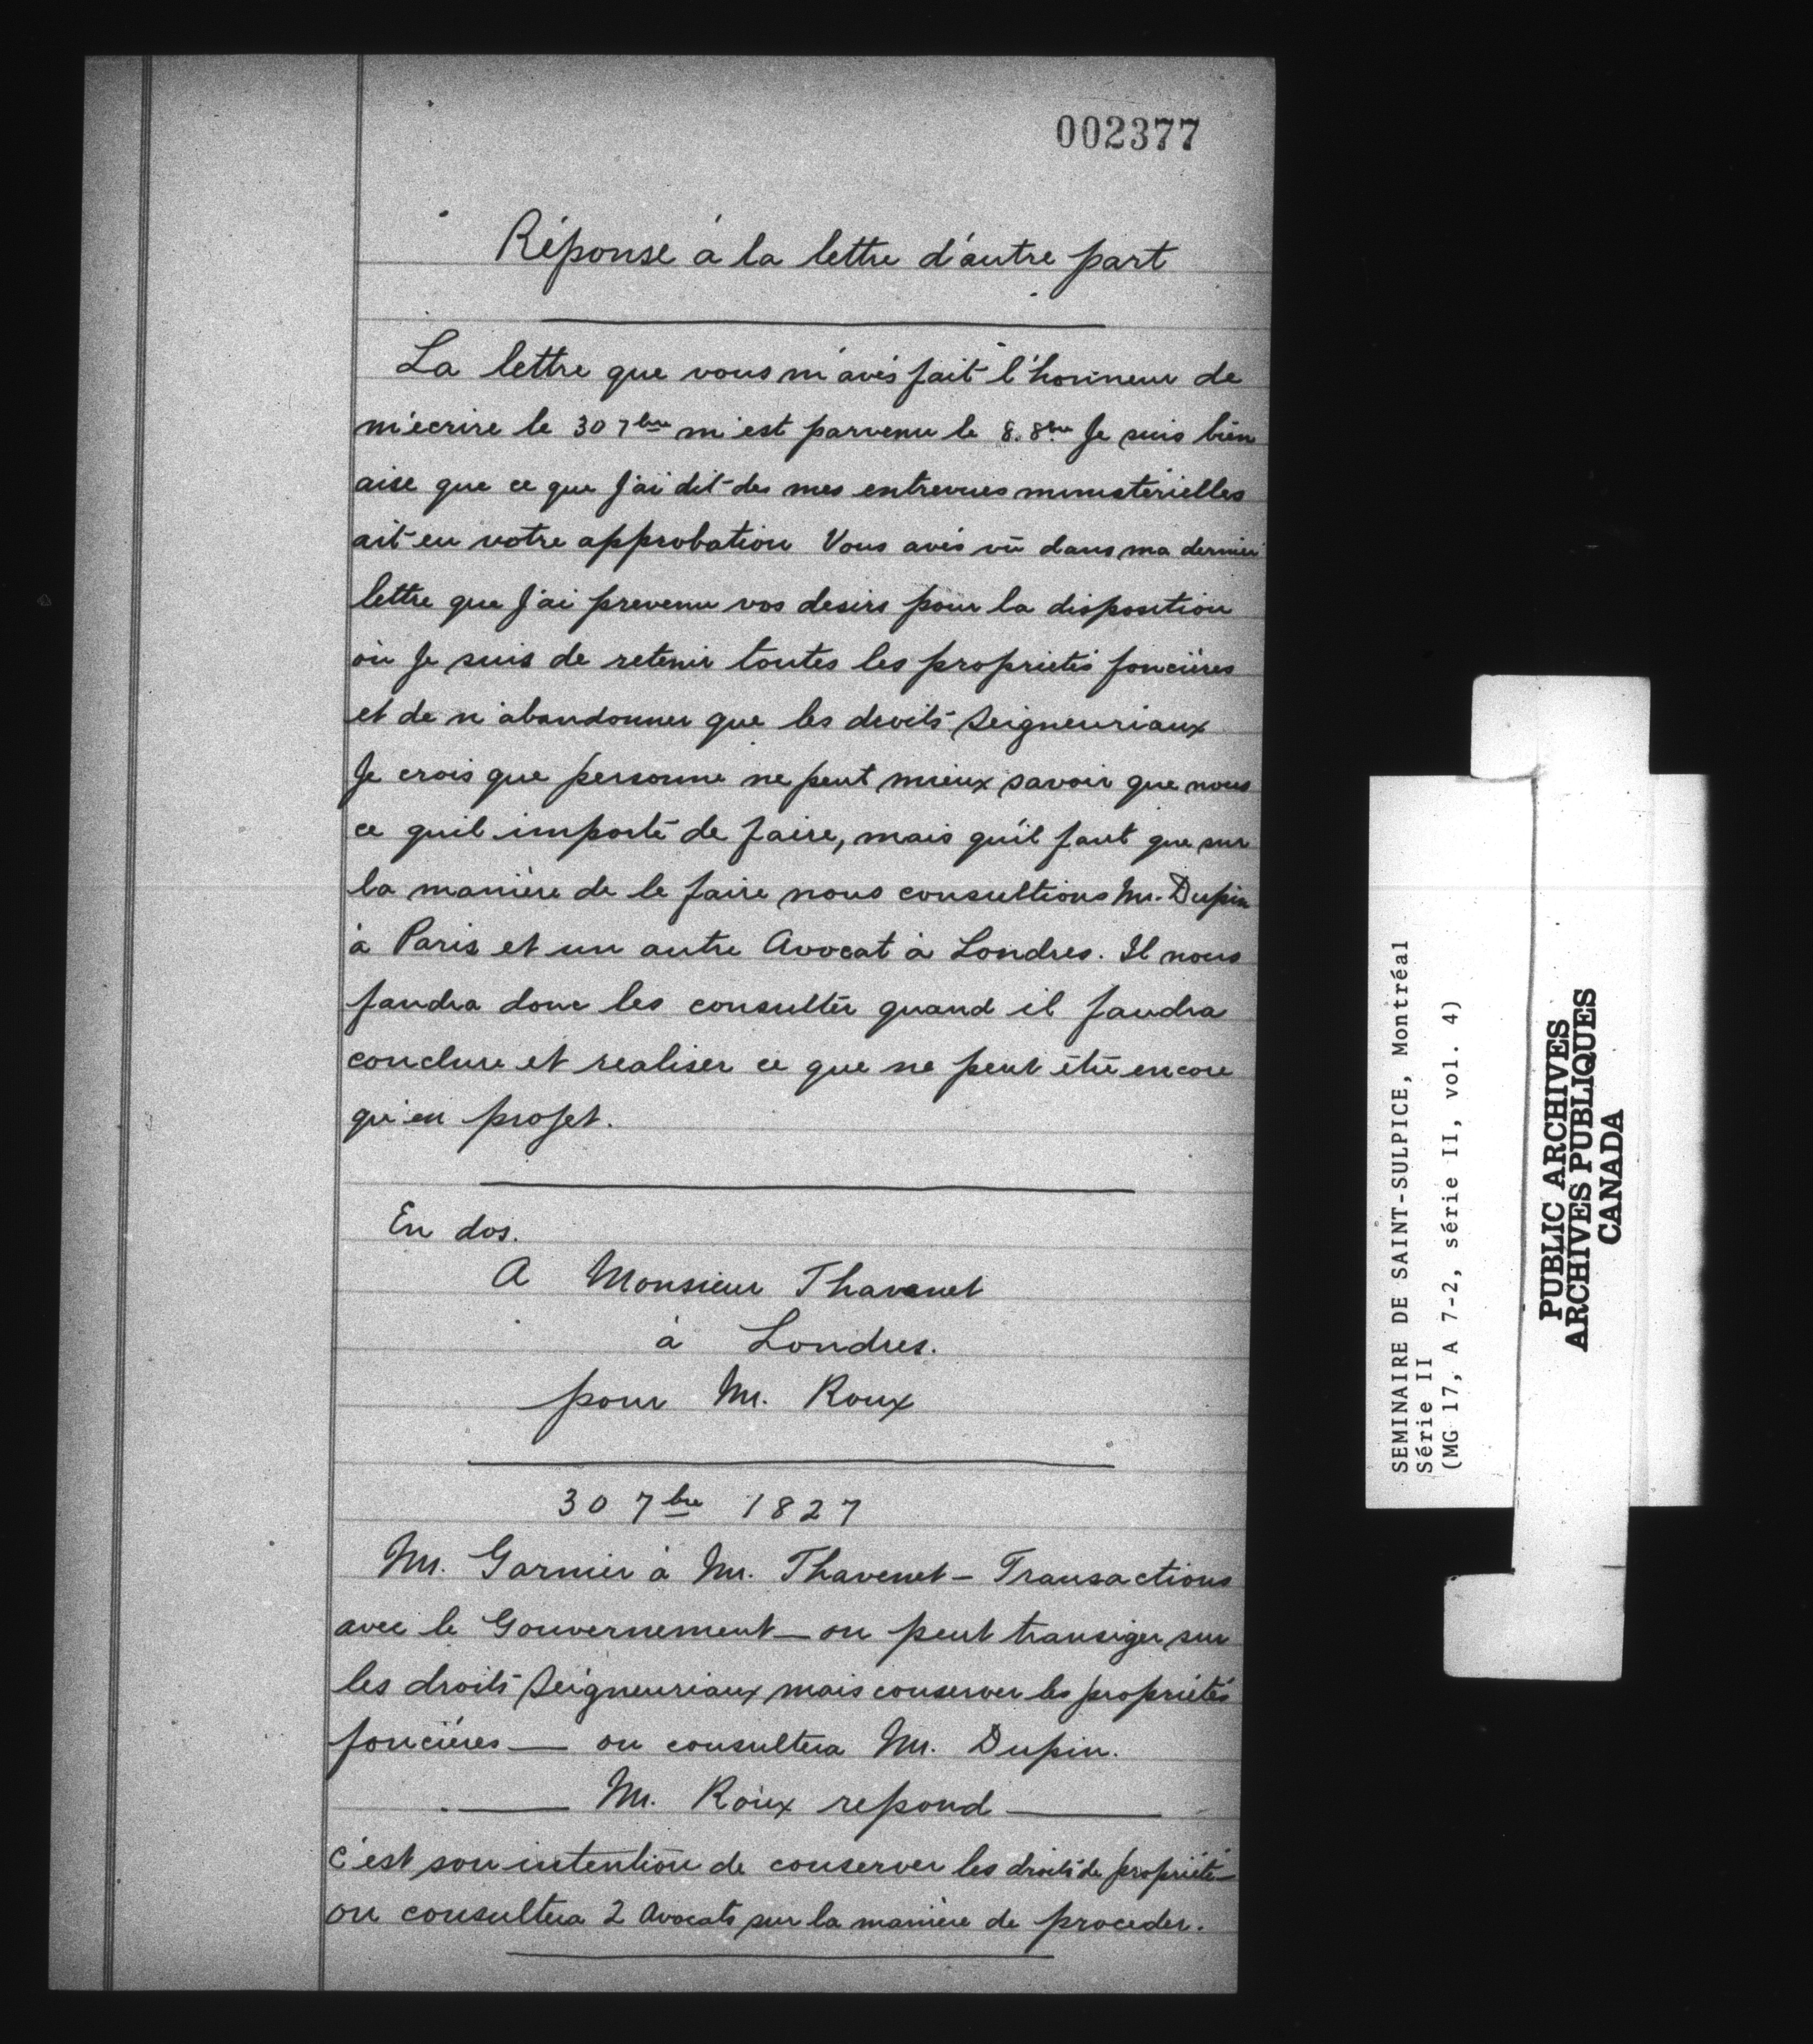 002377
Réponse à la lettre d'autre part
La lettre que vous m'avés fait l'honneur de
m'écrire le 30 7bre m'est parvenu le 8. 8bre Je suis bien
aise que ce que J'ai dit des mes entrevues ministerielles
ait eu votre approbation Vous avés vû dans ma dernier
lettre que J'ai prevenu vos desirs pour la disposition
où Je suis de retenir toutes les proprietés foncières
et de n'abandonner que les droits Seigneuriaux
Je crois que personne ne peut mieux savoir que nous
ce quil importe de faire, mais qu'il faut que sur
la manière de le faire nous consultions Mr. Dupin
à Paris et un autre Avocat à Londres. Il nous
faudra donc les consulter quand il faudra
conclure et realiser ce que ne peut être encore
qu'en projet.
En dos.
A Monsieur Thavenet
à Londres.
pour Mr. Roux
30 7bre 1827
Mr. Garnier à Mr. Thavenet – Transactions
avec le Gouvernement — on peut transiger sur
les droits Seigneuriaux mais conserver les propriétés
foncières — on consultera Mr. Dupin.
— Mr. Roux repond —
C'est son intention de conserver les droits de propriété –
on consultera 2 Avocats sur la manière de proceder.
SEMINAIRE DE SAINT-SULPICE, Montréal
Série II
(MG 17, A 7-2, série II, vol. 4)
PUBLIC ARCHIVES
ARCHIVES PUBLIQUES
CANADA